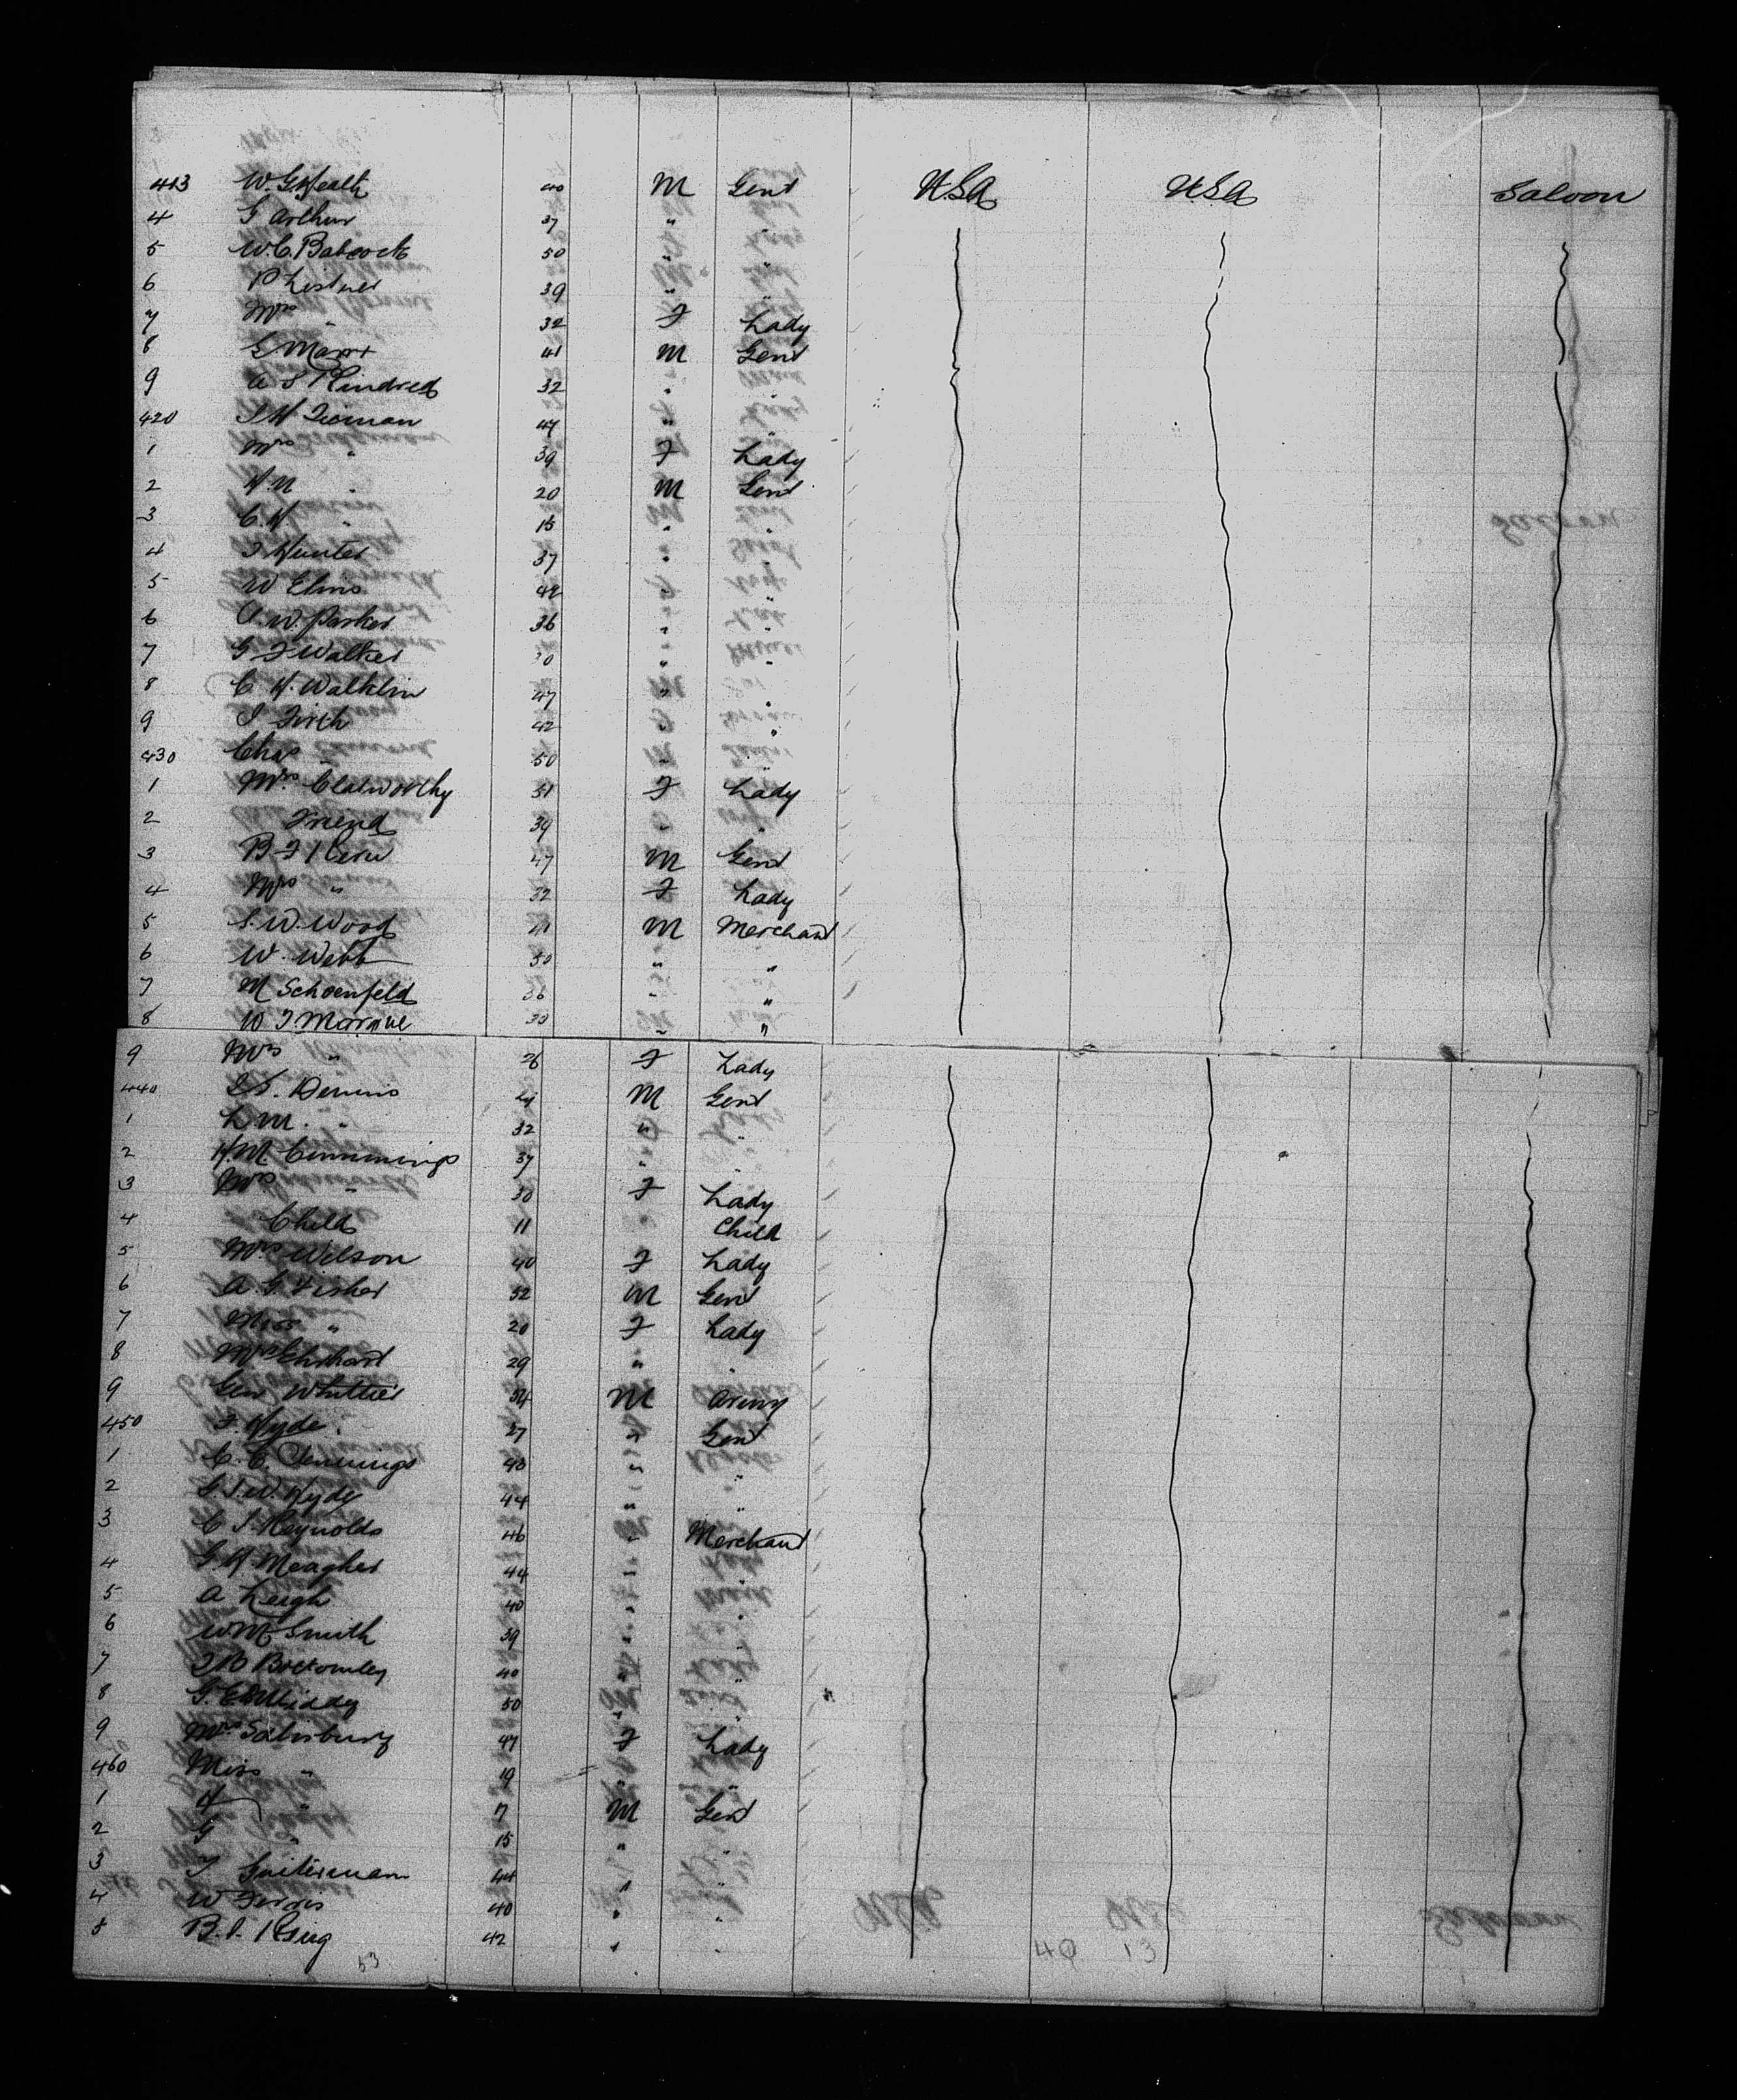 413 W. G. Heath 40 M Gent U.S.A U.S.A Saloon
4 G Arthur 37 " "
5 W. C. Babcock 50 " "
6 P 39 " "
7 Mrs " 32 F Lady
8 E Marx 41 M Gent
9 A S Kindred 32 " "
420 47 " "
1 Mrs " 39 F Lady
2 H. N " 20 M Gent
3 C. H. " 15 " "
4 J Hunter 37 " "
5 W Elms 42 " "
6 A. W. Parker 36 " "
7 G F Walker 30 " "
8 C H. Walklin 47 " "
9 J Firth 42 " "
430 Chas " 50 " "
1 Mrs. Clatworthy 31 F Lady
2 Friend 39 " "
3 B F Kern 47 M Gent
4 Mrs " 32 F Lady
5 S. W. Wood 41 M Merchant
6 W. Webb 50 " "
7 M Schoenfeld 36 " "
8 W J 30 " "
9 Mrs " 26 F Lady
440 Dennis M Gent
1 L M. " 32 " "
2 H. M. Cummings 37 " "
3 Mrs " 30 F Lady
4 Child 11 " Child
5 Mrs Wilson 40 F Lady
6 A. G. Fisher 52 M Gent
7 Miss " 20 F Lady
8 Mrs Ehrhart 29 " "
9 Gen Whittier 54 M Army
450 F. Hyde 27 " Gent
1 C. C. Jennings 43 " "
2 G. J. W. Hyde 44 " "
3 C. S. Reynolds 46 " Merchant
4 G. H. Meagher 44 " "
5 A Leigh 40 " "
6 W M Smith 39 " "
7 Bottomley 40 " "
8 G. E. 50 " "
9 Mrs Salisbury 47 F Lady
460 Miss " 19 " "
1 H " 7 M Gent
2 G " 15 " "
3 J Guiterman 44 " "
4 W Ferris 40 " "
5 B. I. King 42 " "
53 40 13